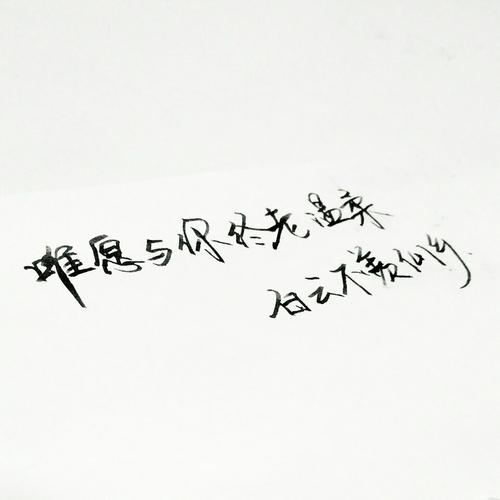 唯愿与你终老温柔
白云不羡仙乡